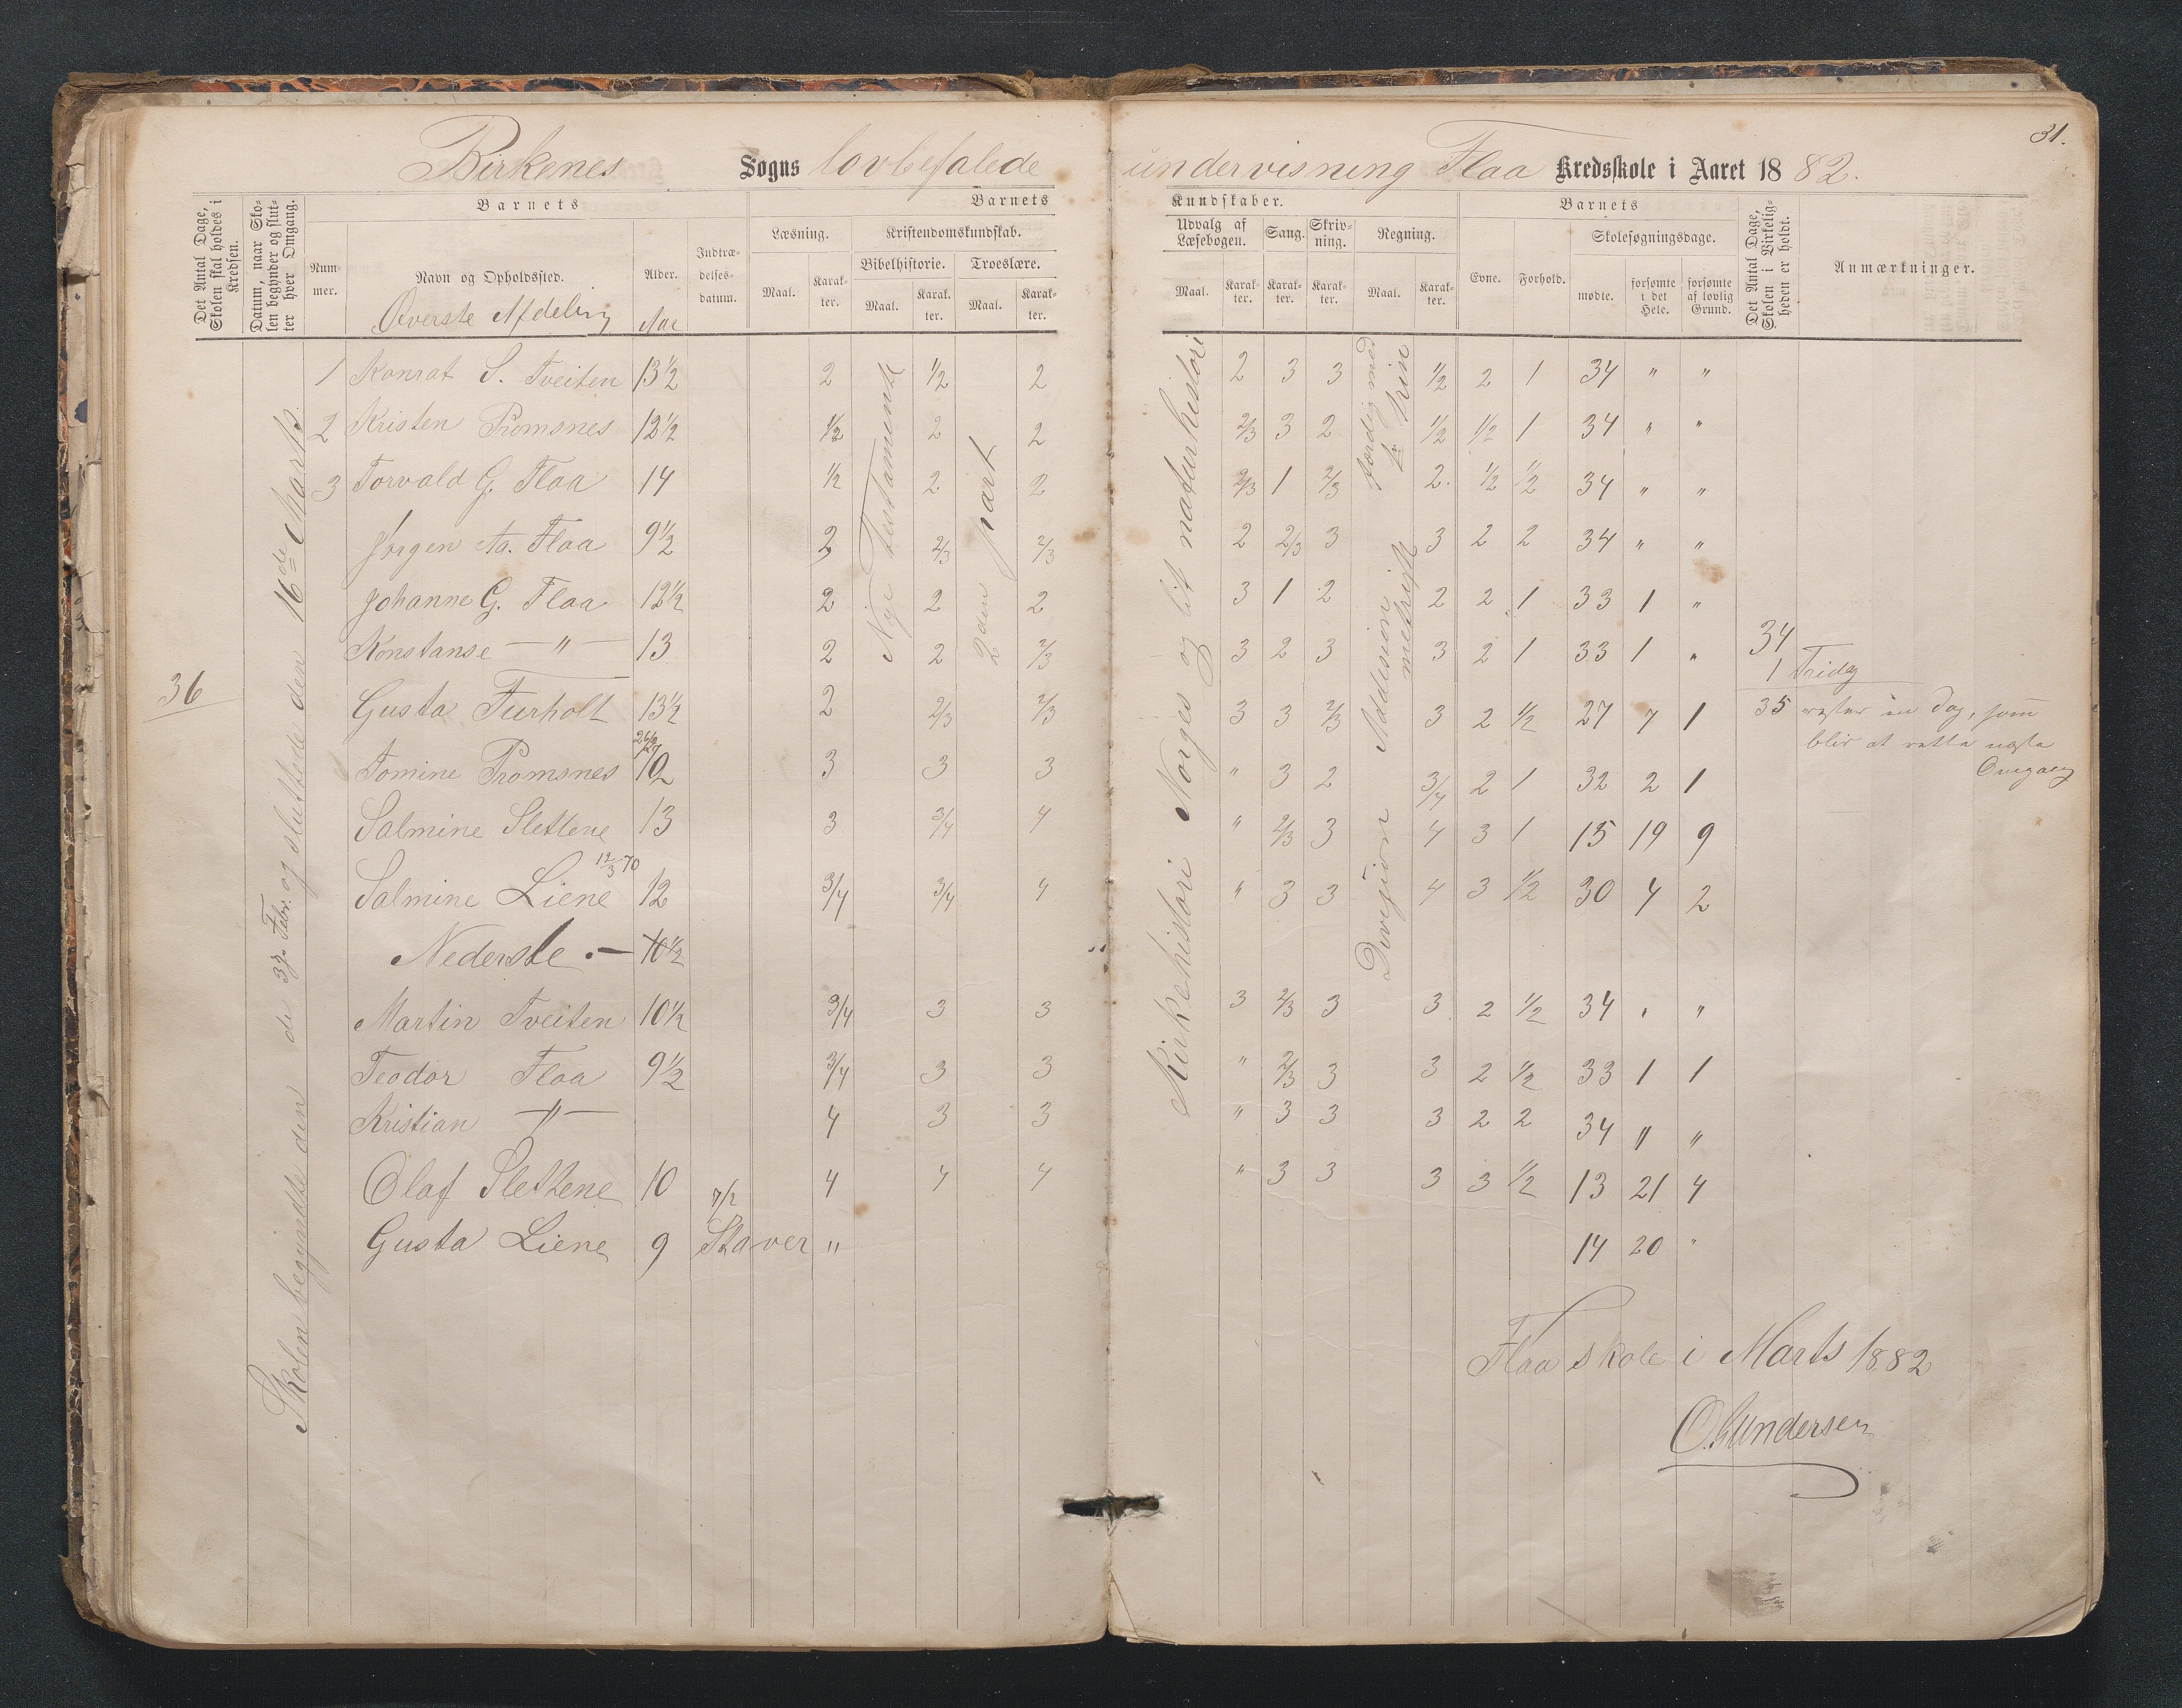 31.
Birkenes Sogns lovbefalede undervisning Flaa Kredsskole i Aaret 1882.
Det Antal Dage, Skolen skal holdes i Kredsen.
Datum, naar Skolen begynder og slutter hver Omgang.
Barnets
Nummer.
Navn og Opholdssted.
Alder.
Indtrædelsesdatum.
Barnets Kundskaber.
Læsning.
Maal.
Karakter.
Kristendomskundskab.
Bibelhistorie.
Maal.
Karakter.
Troeslære.
Maal.
Karakter.
Udvalg af Læsebogen.
Maal.
Karakter.
Sang.
Karakter.
Skrivning.
Karakter.
Regning.
Maal.
Karakter.
Barnets
Evne.
Forhold.
Skolesøgningsdage.
mødte.
forsømte i det Hele.
forsømte af lovlig Grund.
Det Antal Dage, Skolen i Virkeligheden er holdt.
Anmærkninger.
Øverste Afdeling Aar
36
Skolen begyndte den 3je Febr. og sluttede den 16de Marts.
Nye Testamente
2den part
Kirkehistori Norges og lit naturhistori
færdig med
Addision
Divisjion
1 Konrat S. Tveiten 13½ 2 ½ 2 2 3 3 ½ 2 1 34 " "
2 Kristen Promsnes 12½ ½ 2 2 2/3 3 2 ½ ½ 1 34 " "
3 Torvald G. Flaa 14 ½ 2 2 2/3 1 2/3 2. ½ ½ 34 " "
Jørgen Aa. Flaa 9½ 2 2/3 2/3 2 2/3 3 3 2 2 34 " "
Johanne G. Flaa 12½ 2 2 2 3 1 2 2 2 1 33 1 "
Konstanse — " — 13 2 2 2/3 3 2 3 3 2 1 33 1 "
34
1 Fridag
Gusta Furholt 13½ 2 2/3 2/3 3 3 2/3 3 2 ½ 27 7 1
35 rester en Dag, som
blir at rette næste
Omgang
Tomine Promsnes 10 3 3 3 " 3 2 3/4 2 1 32 2 1
Salmine Slettene 13 3 3/4 4 " 2/3 3 4 3 1 15 19 9
12/3 70
Salmine Liene 12 3/4 3/4 4 " 3 3 4 3 ½ 30 4 2
Nederste . — 10½
Martin Tveiten 10½ 3/4 3 3 3 2/3 3 3 2 ½ 34 " "
Teodor Flaa 9½ 3/4 3 3 " 2/3 3 3 2 ½ 33 1 1
Kristian — " — 4 3 3 " 3 3 3 2 2 34 " "
Olaf Slettene 10 4 4 4 " 3 3 3 3 ½ 13 21 4
7/2
Gusta Liene 9 Staver " 14 20 "
Flaa skole i Marts 1882
O. Gundersen